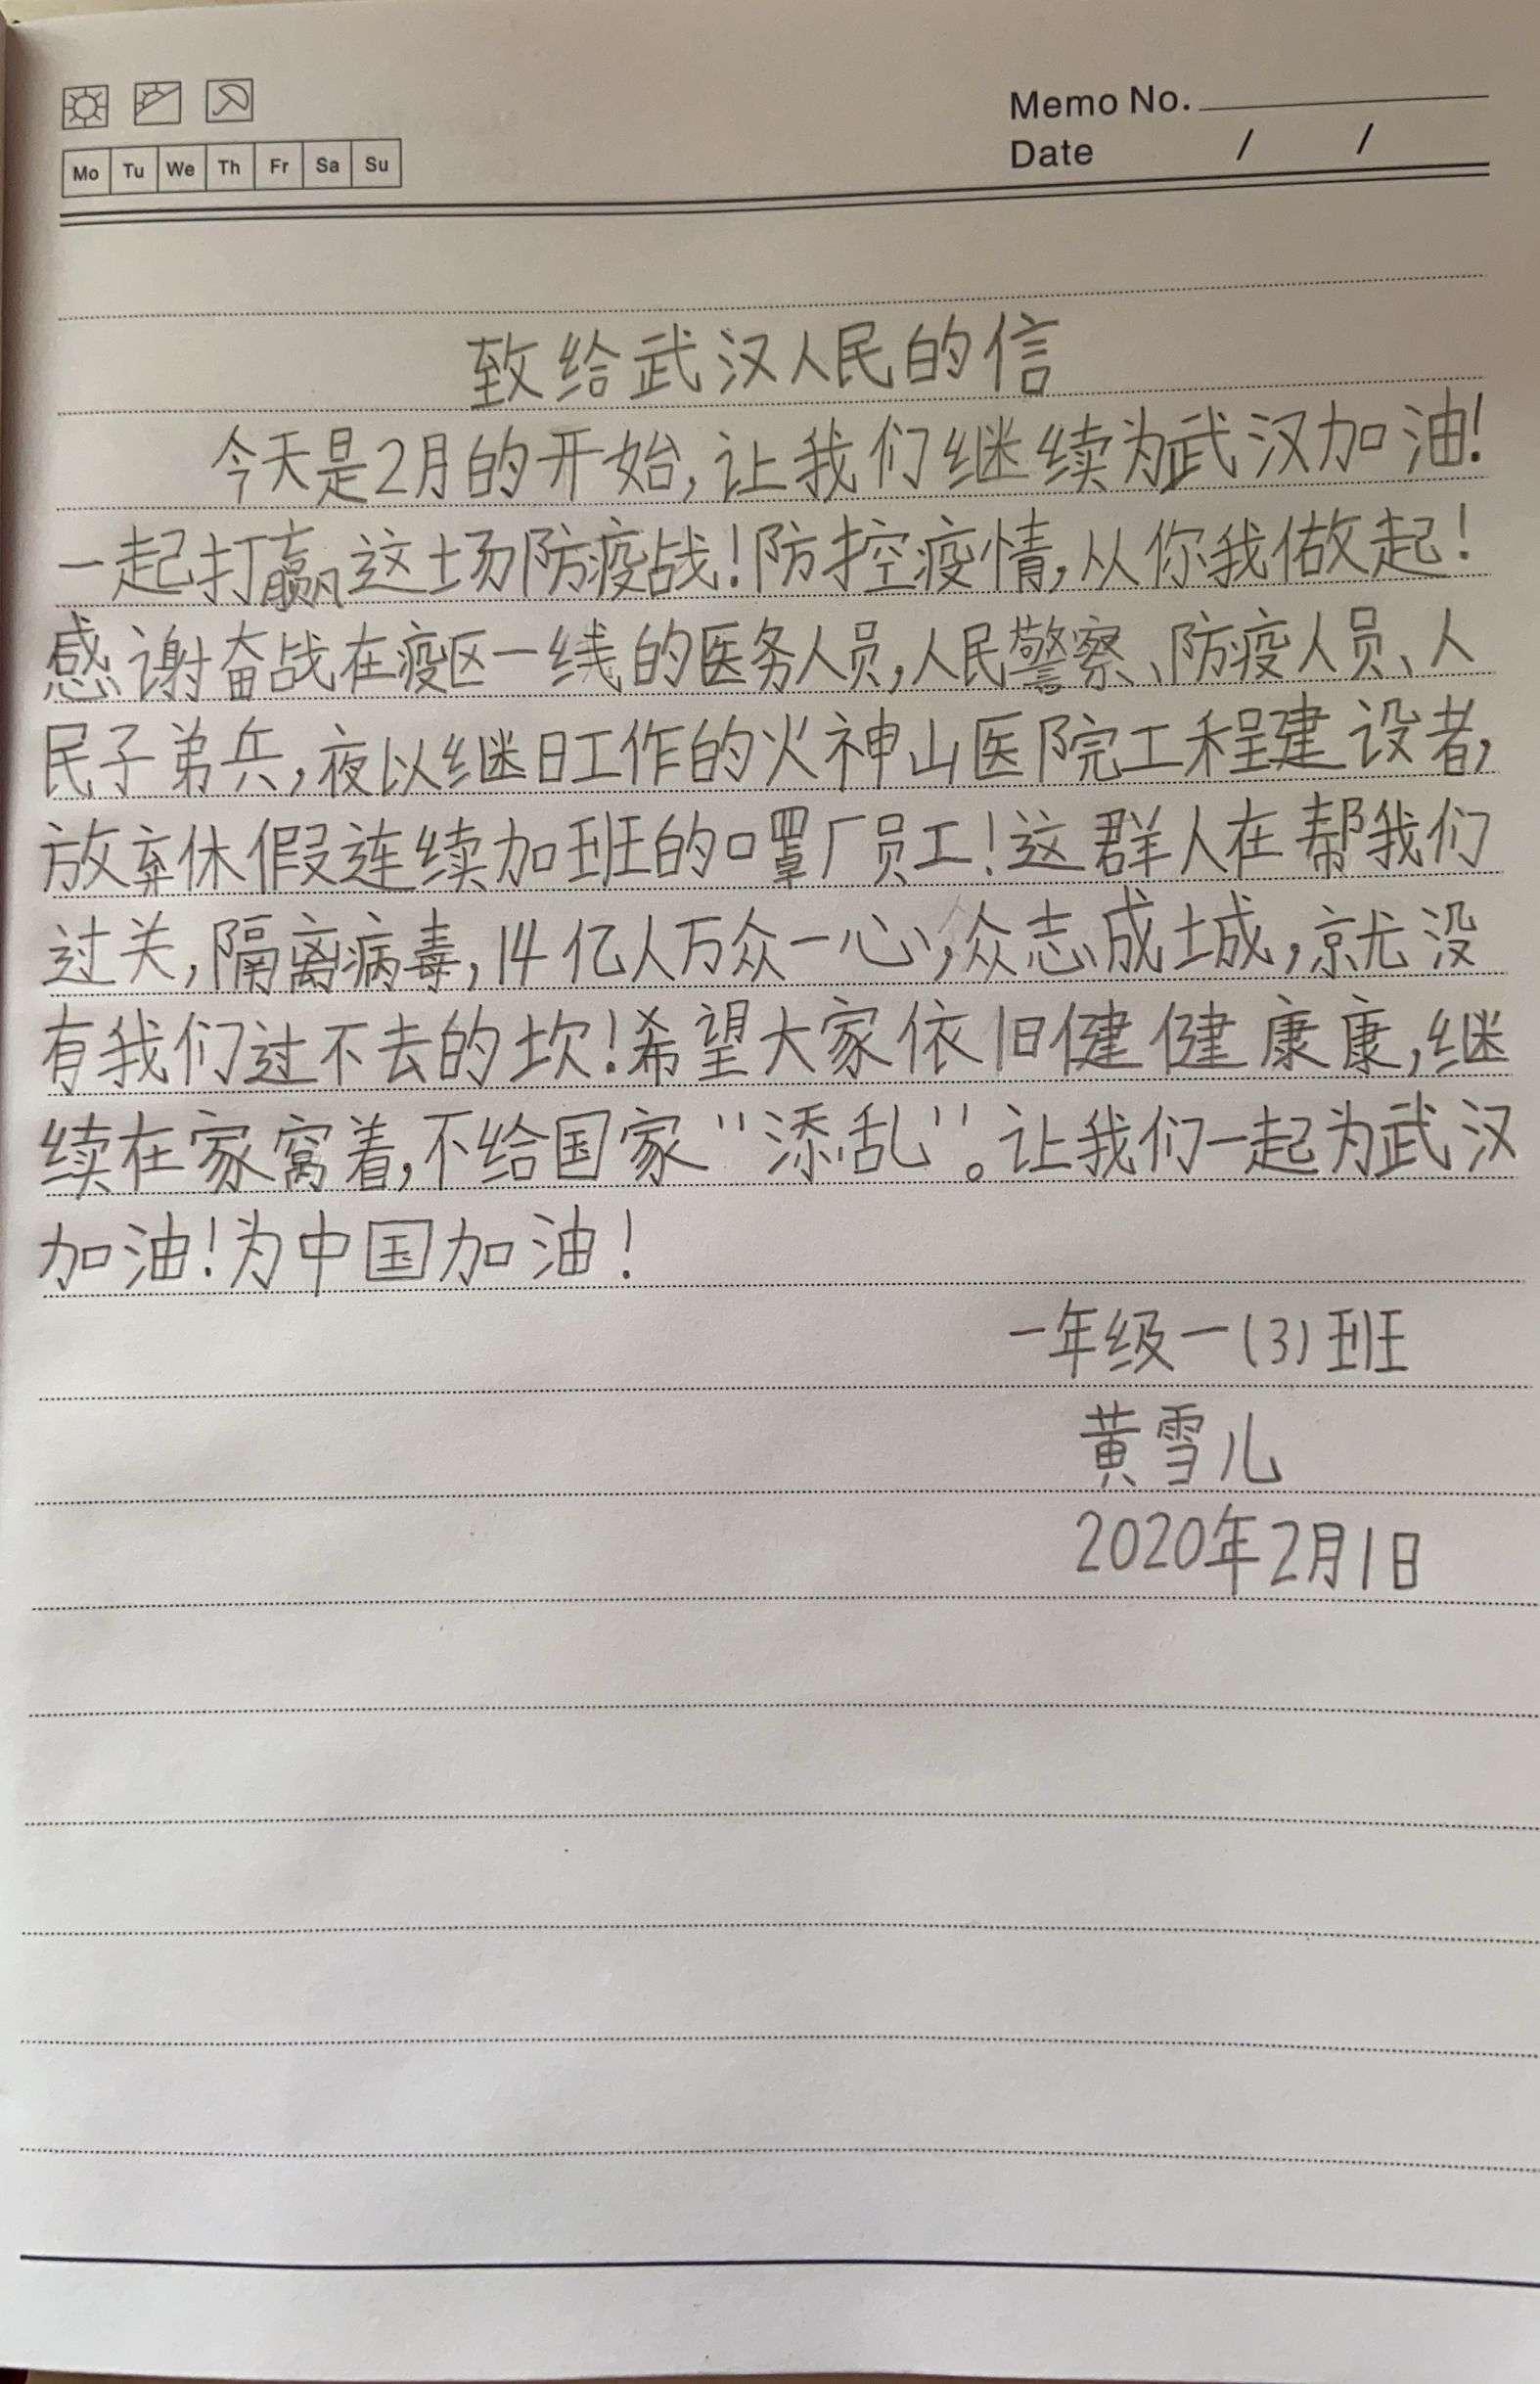 Memo No.
Mo Tu We Th Fr Sa Su
Date / /
致给武汉人民的信
今天是2月的开始,让我们继续为武汉加油!
一起打赢这场防疫战!防控疫情,从你我做起!
感谢奋战在疫区一线的医务人员,人民警察、防疫人员、人
民子弟兵,夜以继日工作的火神山医院工程建设者,
放弃休假连续加班的口罩厂员工!这群人在帮我们
过关,隔离病毒,14亿人万众一心,众志成城,就没
有我们过不去的坎!希望大家依旧健健康康,继
续在家窝着,不给国家“添乱”。让我们一起为武汉
加油!为中国加油!
一年级一(3)班
黄雪儿
2020年2月1日